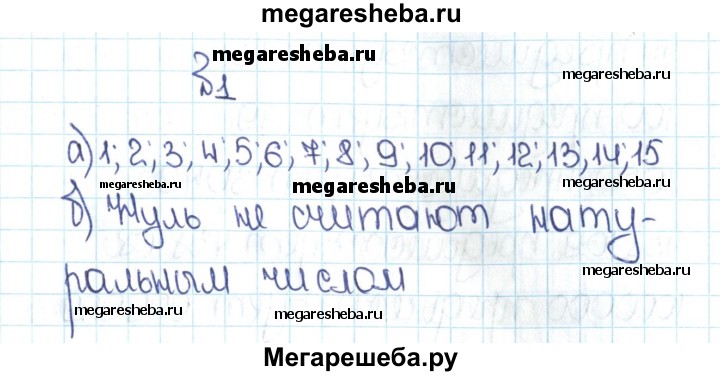 megaresheba.ru
megaresheba.ru
№1
megaresheba.ru
а) 1; 2; 3; 4; 5; 6; 7; 8; 9; 10; 11; 12; 13; 14; 15
megaresheba.ru megaresheba.ru megaresheba.ru
б) Нуль не считают нату-
megaresheba.ru
ральным числом
megaresheba.ru megaresheba.ru
Мегарешеба.ру